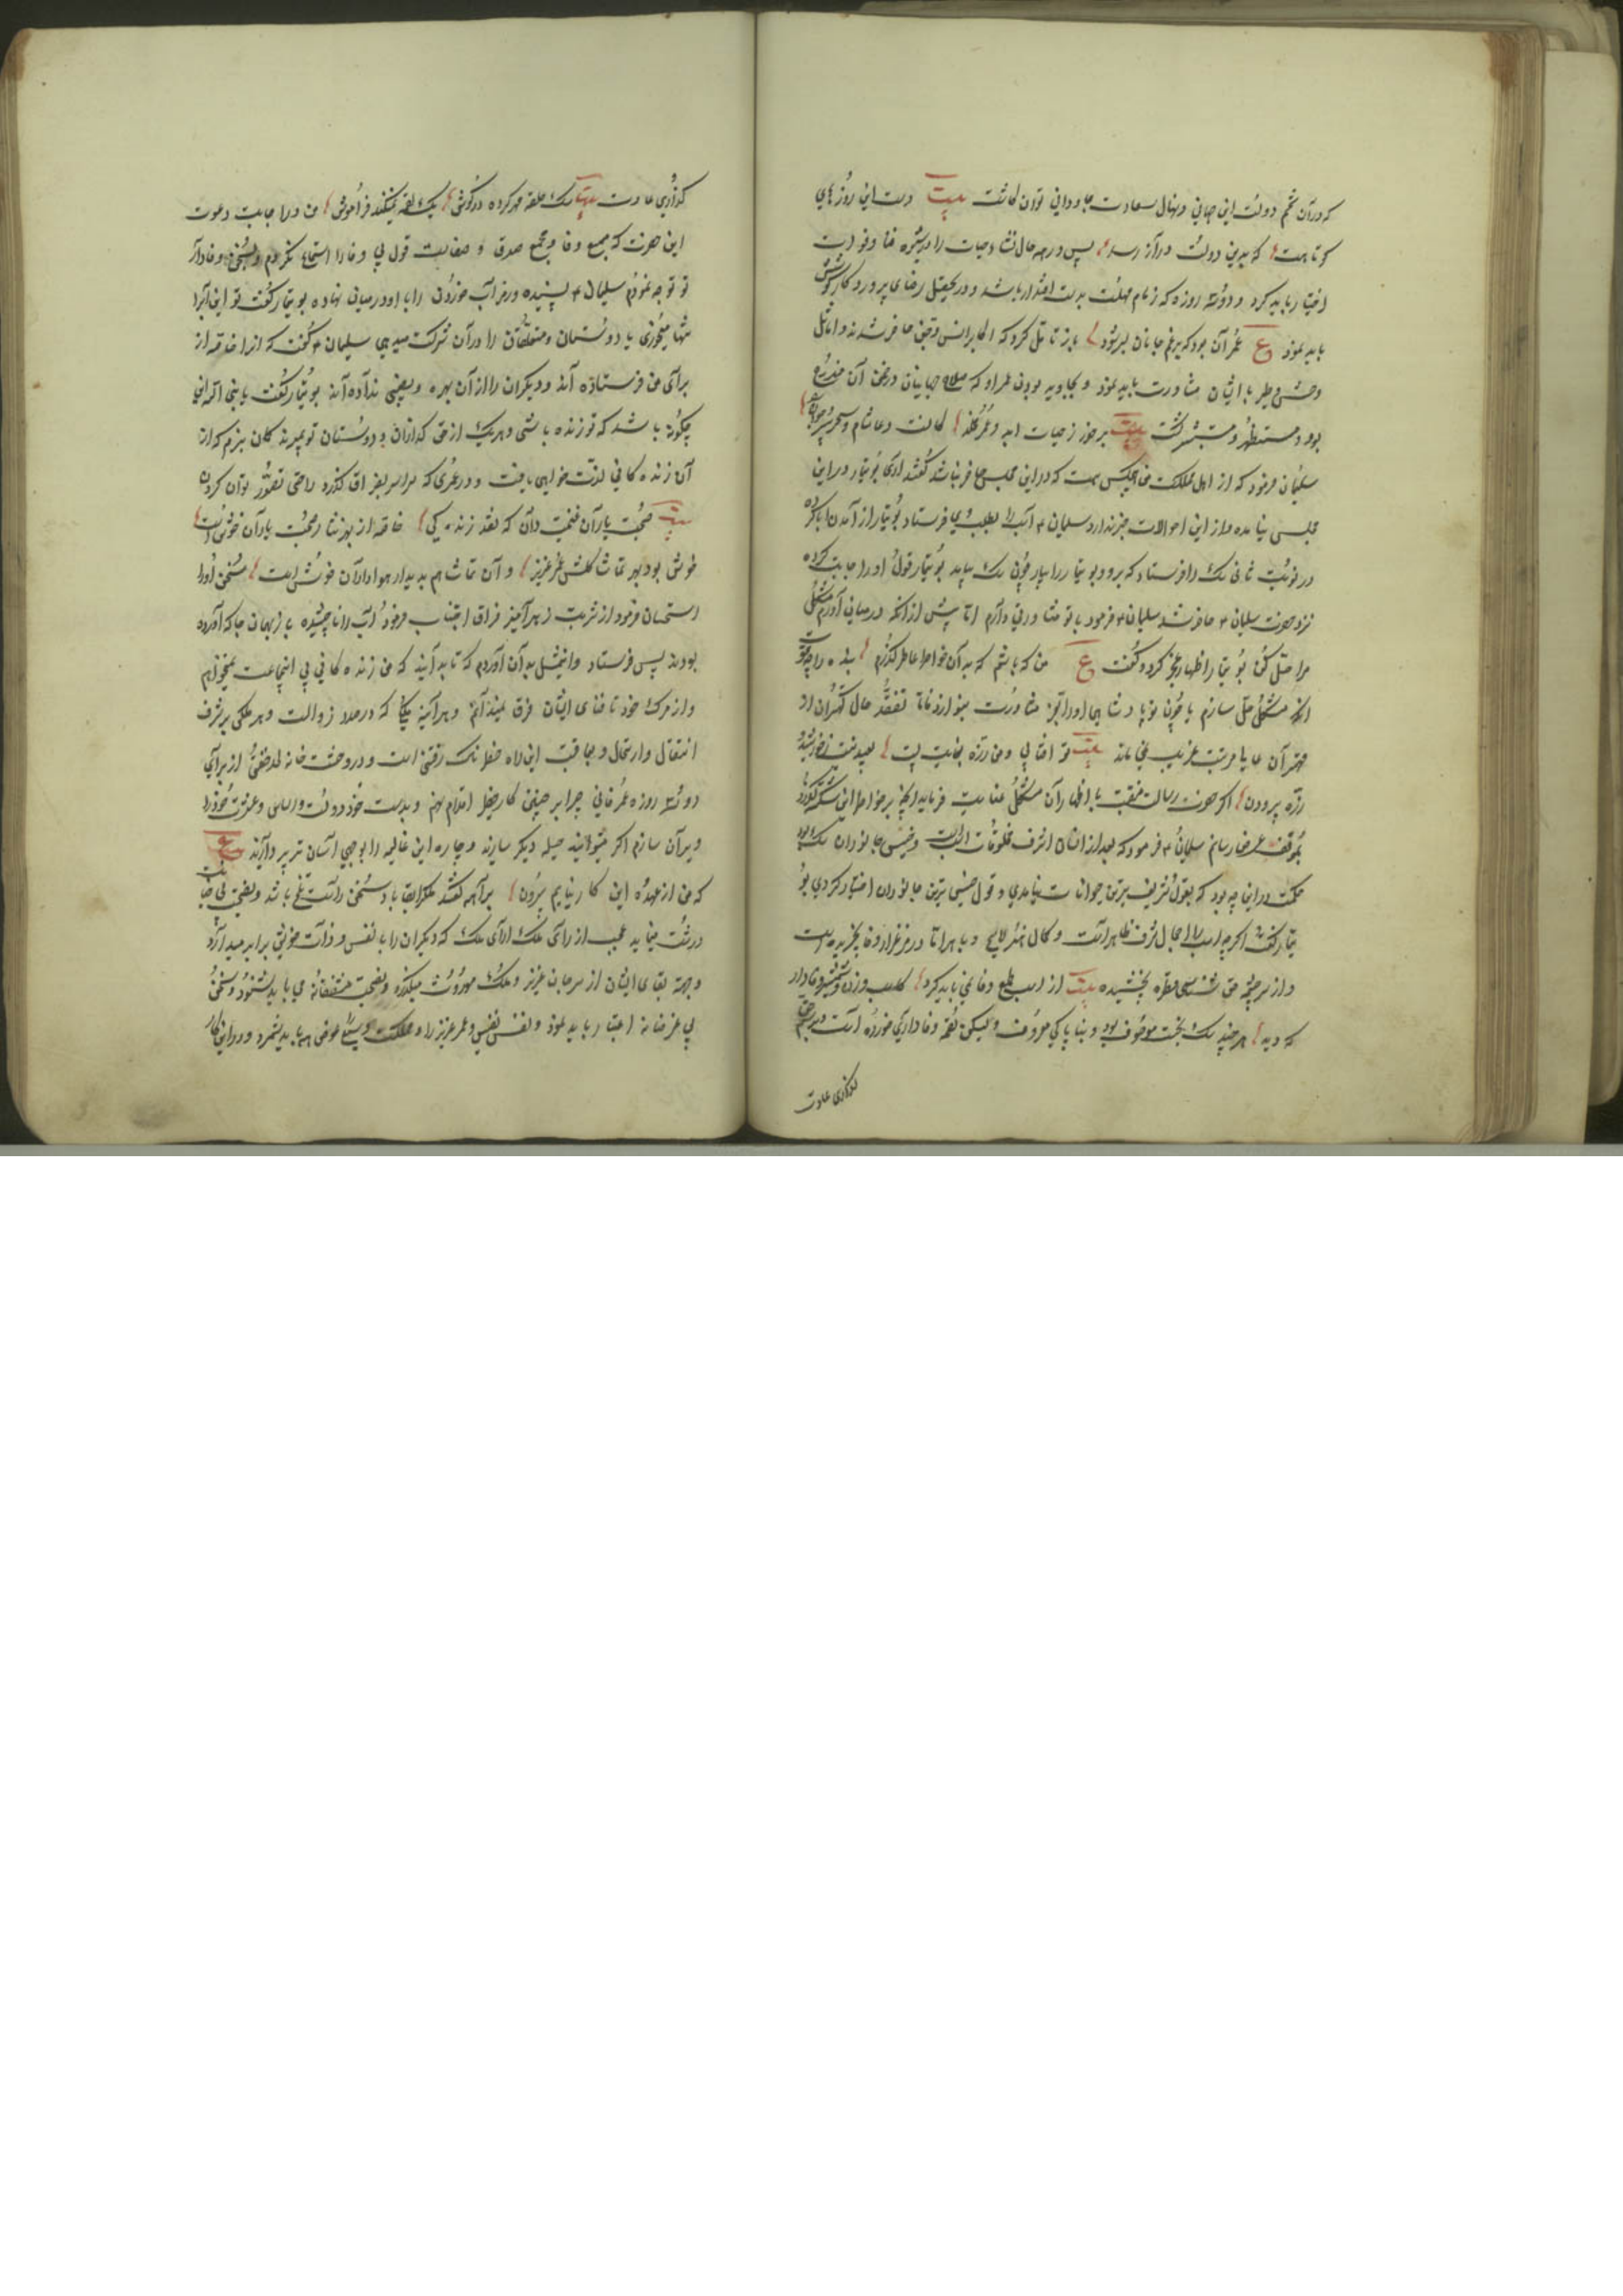 که در آن تخم دولت این جهانی و نهال سعادت جاودانی توان کاشت بیت دست این روزهای
کوتاهست که بدین دولت دراز رسد پس در همه حال نشاء حیات را در شیوه
اختیار باید کرد و دو سه روزه که زمام مهلت بدست اقتدار باشد و در تحصیل رضای پروردگار کوشش
باید نمود ع عمر آن بود که بر غم جانان بسر شود باز تامل کرد که اکابر انس و جن حاضر شدند و اماثل
وحش و طیر با ایشان مشاورت باید نمود و بجاوید بودن عمر او که صلاح جهانیان در ضمن آن مندرج
بود مستظهر و مستبشر گشت بیت برخور ز حیات ابد و عمر
سلیمان فرمود که از اهل مملکت من هیچکس هست که در این مجلس حاضر نباشد گفتند آری بوتیمار در این
مجلس نیامده و از این احوالات خبر ندارد سلیمان ۴ اسب را بطلب وی فرستاد بوتیمار از آمدن ابا کرده
در نوبت ثانی سگ را فرستاد که برو و بوتیمار را بیار چون سگ بیامد بوتیمار قول او را اجابت کرده
نزد حضرت سلیمان ۴ حاضر شد سلیمان ۴ فرمود با تو مشاورتی دارم اما پیش از آنکه در میان آورم مشکلی
مرا حل کن بوتیمار اظهار عجز کرد و گفت ع من که باشم که بدان خواطر عاطر گذرم بنده را چه قوت
آنکه مشکلی حل سازم یا چون تو پادشاهی او را بعز مشاورت بنوازد اما تفقد حال کهتران از
مهتران عالی مرتبت غریب نمی نماید بیت تو آفتابی و من ذره
ذره پرودن اگر حضرت رسالت منقبت با اظهار آن مشکل عنایت فرماید آنچه بر خواطر این شکسته گذرد
بموقف عرض رسانم سلیمان ۴ فرمود که بعد از انسان اشرف مخلوقات اسبست و خسیس جانوران سگ بود
حکمت در این چه بود که بقول شریف ترین حیوانات نیامدی و قول خسیس ترین جانوران اختیار کردی بو
تیمار گفت اگر چه اسب را جمال شرف ظاهر است و کمال هنر لایح و باهر اما در مرغزار وفا نچریده است
و از سرچشمه حق شناسی قطره نچشیده بیت از اسب طمع وفا نمی باید کرد که اسب و زن و شمشیر وفادار
که دید هر چند سگ بخست موصوف بود و بناپاکی معروف ولیکن لقمه وفاداری خورده است و بر رسم حق
گذاری عادت

گذاری عادت بیت سگ حلقه مهر کرده در گوش یک لقمه نمیکند فراموش من در اجابت دعوت
این حضرت که منبع وفا و مجمع صدق و صفاست قول بی وفا را استماع نکردم و بسخن وفادار
تو توجه نمودم سلیمان ۴ پسندیده و رمز آب خوردن را با او در میان نهاده بوتیمار گفت تو این آب را
تنها میخوری یا دوستان و متعلقان را در آن شرکت میدهی سلیمان ۴ گفت که از خدا
برای من فرستاده اند و دیگران را از آن بهره و نصیبی نداده اند بوتیمار گفت یا نبی الله این
چگونه باشد که تو زنده باشی و هر یک از فرزندان و دوستان تو بمیرند گمان نبرم که از
آن زنده گانی لذت خواهی یافت و در عمری که سراسر بفراق گذرد راحتی تصور توان کردن
بیت صحبت یاران غنیمت دان که نقد زندگی خاصه از بهر نثار صحبت یاران خوش است
خوش بود بهر تماشا گلشن عمر عزیز و آن تماشا هم بدیدار هواداران خوش است سخن او را
استحسان فرمود از شربت زهر آمیز فراق اجتناب فرمود و آب را ناچشیده باز بهمان جا که آورده
بودند پس فرستاد و این مثل بدان آوردم که تا بدانید که من زنده گانی بی این جماعت نمیخواهم
و از مرگ خود تا فنای ایشان فرق نمیدانم و هر آینه ملکی که در صدد زوالست و هر ملکی بر شرف
انتقال و ارتحال و بعاقبت این راه خطرناک رفتنی است و در وحشت خانه لحد خفتن از برای
دو سه روزه عمر فانی چرا بر چنین کار خطیر اقدام نهم و بدست خود دولت و اساس و عزت خود را
ویران سازم اگر میتوانید حیله دیگر سازید و چاره این غائله را بوجهی آسان تر بپردازید ع
که من از عهده این کار نیایم بیرون برآهمه گفتند ملک را بقا باد سخن راست تلخ باشد و نصیحت بی خیانت
درشت مینماید عجب از رای ملک آرای ملک که دیگران را با نفس و ذات خویش برابر میدارد
و جهة بقای ایشان از سر جان عزیز و ملک موروث میگذرد و نصیحت مشفقانه می باید شنود و سخن
بی غرضانه اعتبار باید نمود و نفس نفیس و عمر عزیز را و مملکت وسیع عوض همه باید شمرد و در این کار